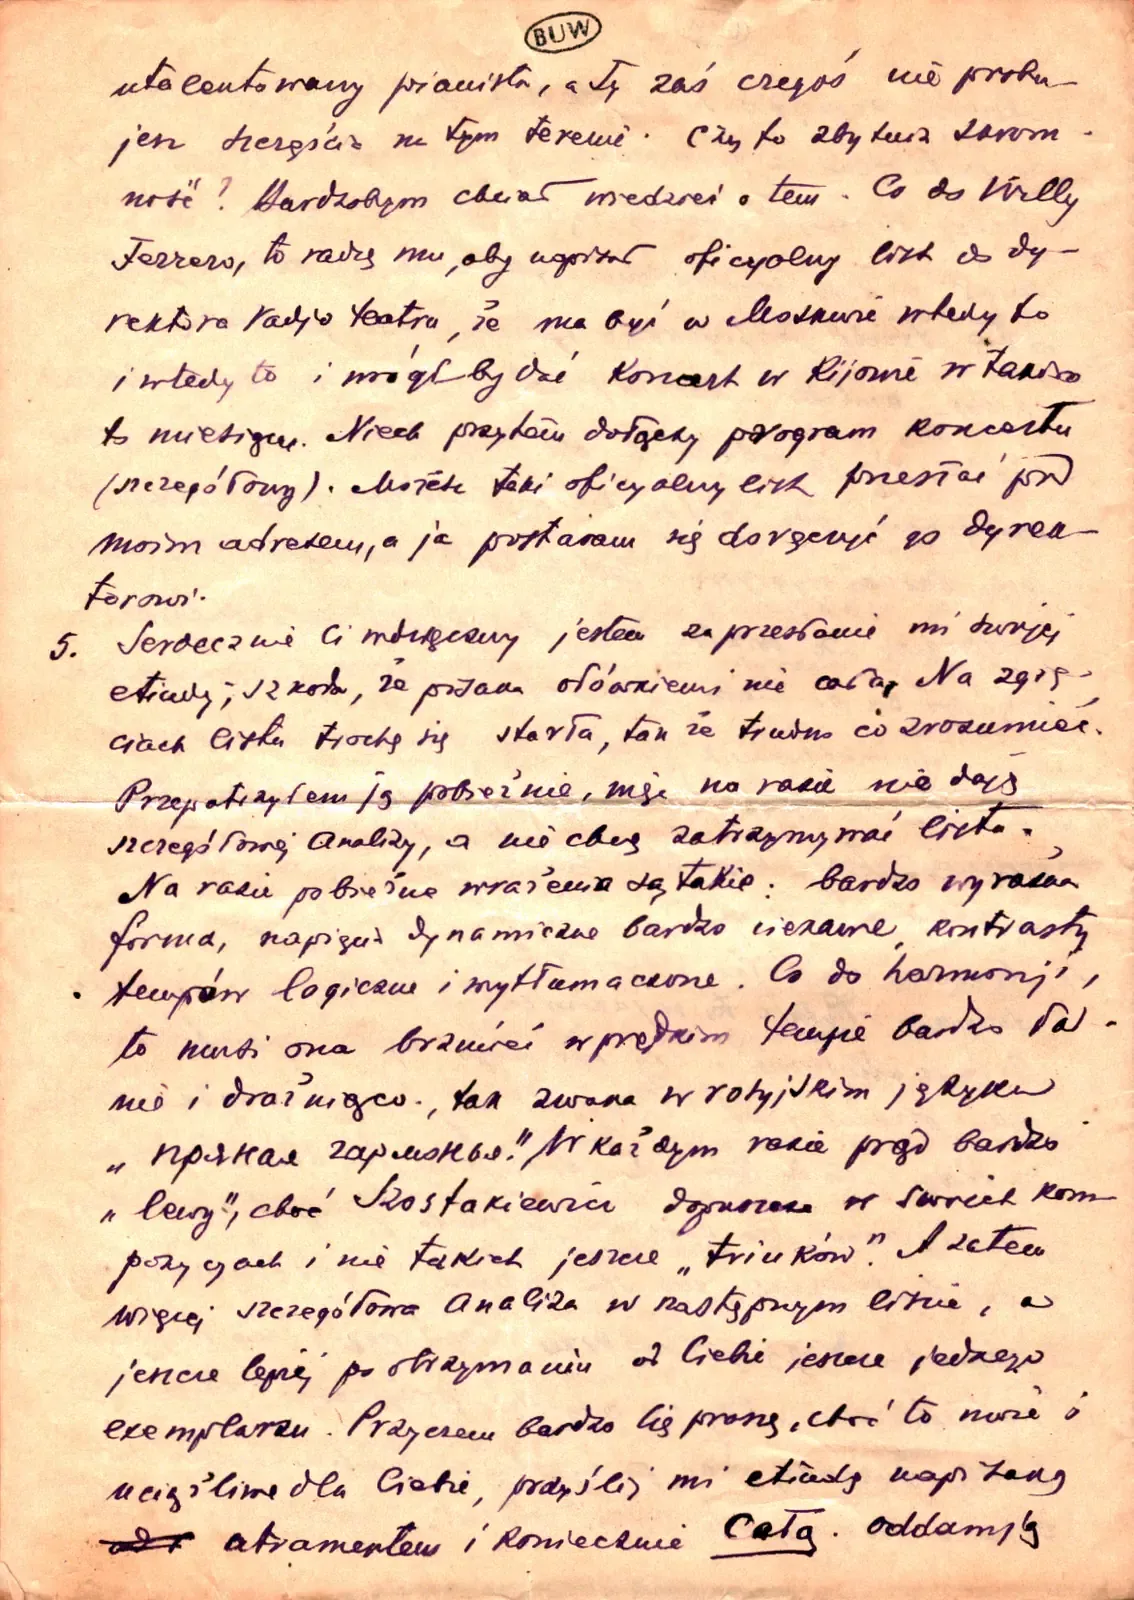 BUW
utalentowany pianista, a Ty zaś czegoś nie probu-
jesz szczęścia na tym terenie. Czy to zbytnia skrom-
ność? Bardzobym chciał wiedzieć o tem. Co do Willy
Ferrero, to radzę mu, aby napisał oficyalny list do dy-
rektora radjo teatru, że ma być w Moskwie wtedy to
i wtedy to i mógłby dać koncert w Kijowie w takim
to miesiącu. Niech przytem dołączy program koncertu
(szczegółowy). Możesz taki oficyalny list przesłać pod
moim adresem, a ja postaram się doręczyć go dyrek-
torowi.
5. Serdecznie Ci wdzięczny jestem za przesłanie mi swojej
etiudy; szkoda, że pisana ołówkiem i nie cała. Na zgię-
ciach listu trochę się starła, tak że trudno co zrozumieć.
Przepatrzyłem ją pobieżnie, więc na razie nie daję
szczegółowej analizy, a nie chcę zatrzymywać listu.
Na razie pobieżne wrażenia są takie: bardzo wyraźna
forma, napięcia dynamiczne bardzo ciekawe, kontrasty
tempów logiczne i wytłumaczone. Co do harmonji,
to musi ona brzmieć w prędkim tempie bardzo ład-
nie i drażniąco, tak zwana w rosyjskim języku
„пряная гармонья". W każdym razie prąd bardzo
„lewy", choć Szostakiewicz dopuszcza w swoich kom-
pozycjach i nie takich jeszcze „triuków". A zatem
więcej szczegółowa analiza w następnym liście, a
jeszcze lepiej po otrzymaniu od Ciebie jeszcze jednego
exemplarzu. Przyczem bardzo Cię proszę, choć to może i
uciążliwe dla Ciebie, przyślij mi etiudę napisaną
atramentem i koniecznie całą. Oddam ją